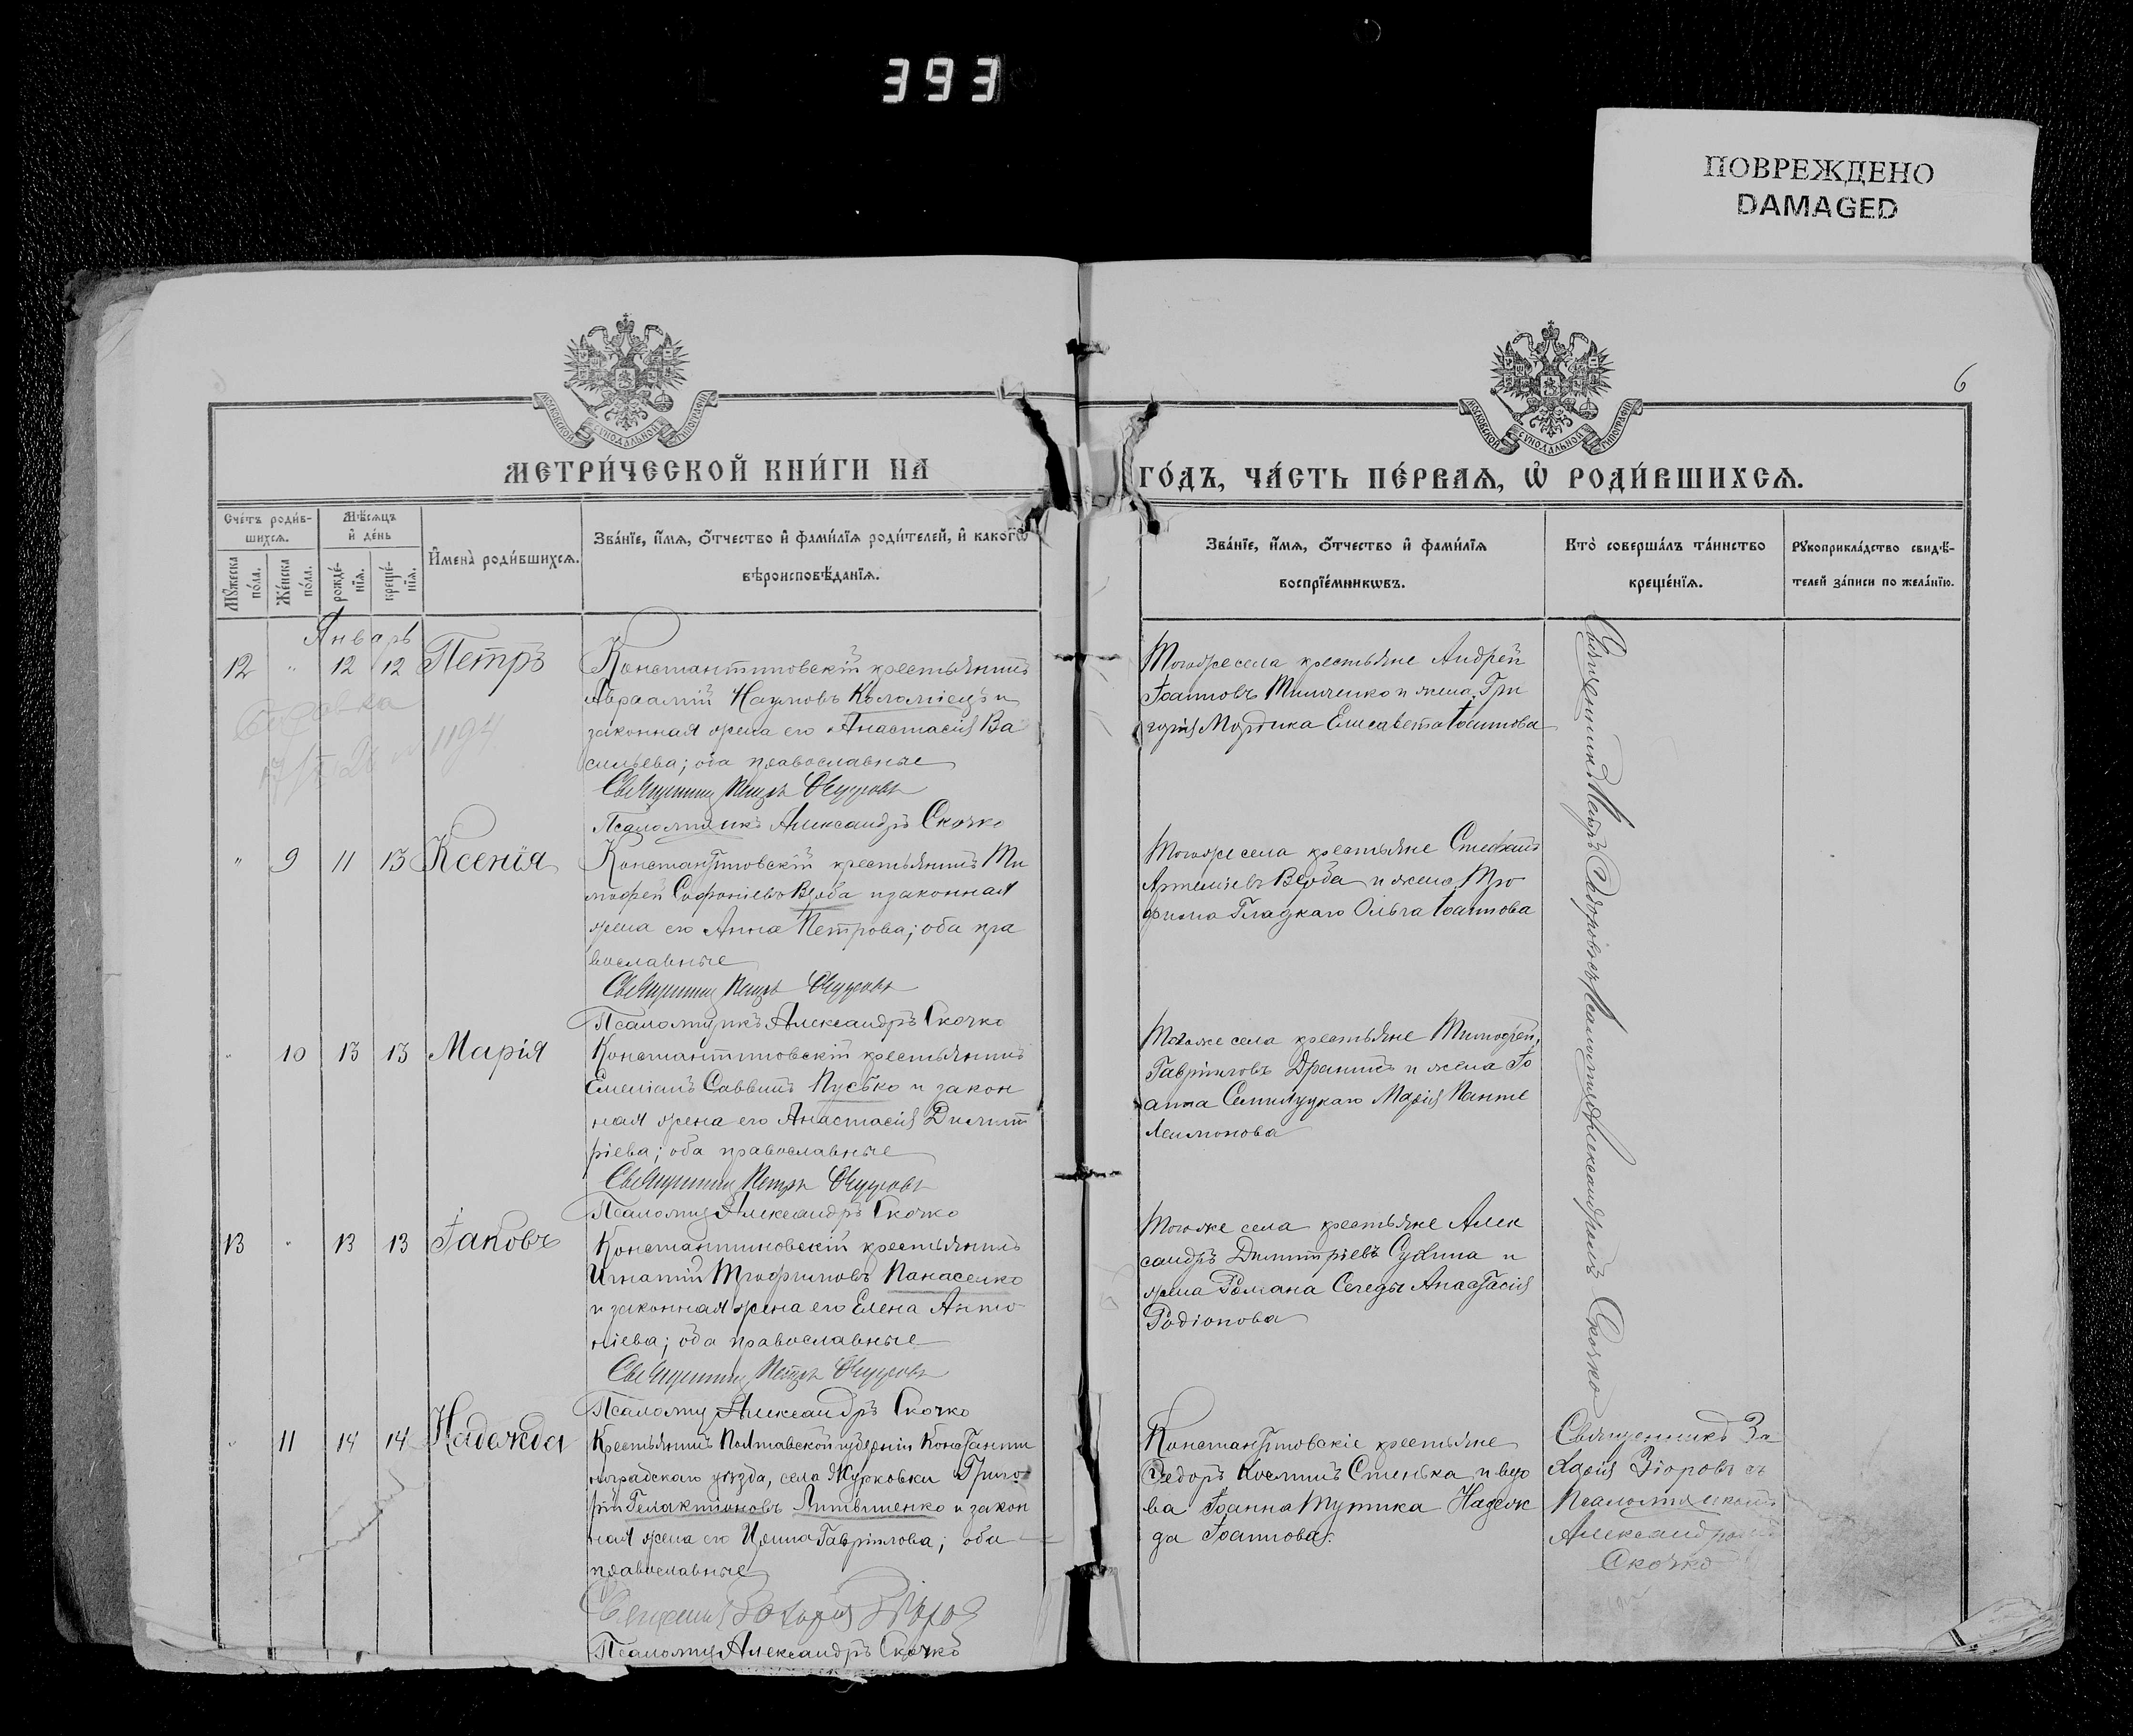 393
ПОВРЕЖДЕНО
DAMAGED
6
МОСКОВСКОЙ СУНОДАЛЬНОЙ ТИПОГРАФІИ
МОСКОВСКОЙ СУНОДАЛЬНОЙ ТИПОГРАФІИ
МЕТРИ́ЧЕСКОЙ КНИ́ГИ НА
ГО́ДЪ, ЧА́СТЬ ПЕ́РВАѦ, Ѡ҆ РОДИ́ВШИХСѦ.
Сче́тъ роди́в-
шихсѧ.
Мꙋ́жеска по́ла.
Же́нска по́ла.
Мѣ́сѧцъ
и҆ де́нь
рожде́-
нїѧ.
креще́-
нїѧ.
И҆мена̀ роди́вшихсѧ.
Зва́нїе, и҆́мѧ, ѻ҆́тчество и҆ фами́лїѧ роди́телей, и҆ како́гѡ
вѣроисповѣ́данїѧ.
Зва́нїе, и҆́мѧ, ѻ҆́тчество и҆ фами́лїѧ
воспрїе́мникѡвъ.
Кто̀ соверша́лъ та́инство
креще́нїѧ.
Рꙋкоприкла́дство свидѣ́-
телей за́писи по жела́нїю.
Январь
12 " 12 12 Петръ
Константиновскій крестьянинъ
Авраамій Наумовъ Коломіецъ и
законная жена его Анастасія Ва
сильева; оба православные
Священникъ Петръ
Псаломщикъ Александръ Скочко
Тогоже села крестьяне Андрей
Іоанновъ Тимченко и жена Гри
горія Елисавета Іоаннова
№ 1194
" 9 11 13 Ксенія
Константиновскій крестьянинъ Ти
мофей Софоніевъ Верба и законная
жена его Анна Петрова; оба пра
вославные
Священникъ Петръ
Псаломщикъ Александръ Скочко
Тогоже села крестьяне Стефанъ
Артеміевъ Верба и жена Тро
фима Гладкаго Ольга Іоаннова
" 10 13 13 Марія
Константиновскій крестьянинъ
Емеліанъ Саввинъ Пусько и закон
ная жена его Анастасія Димит
ріева; оба православные
Священникъ Петръ
Псаломщ Александръ Скочко
Тогоже села крестьяне Тимофей
Гавріиловъ и жена Іо
анна Семилуцкаго Марія Панте
леимонова
13 " 13 13 Іаковъ
Константиновскій крестьянинъ
Игнатій Трофимовъ Панасенко
и законная жена его Елена Анто
ніева; оба православные
Священникъ Петръ
Псаломщ Александръ Скочко
Тогоже села крестьяне Алек
сандръ Димитріевъ и
жена Романа Середы Анастасія
Родіонова
Священникъ Петръ съ Псаломщ Александромъ Скочко
" 11 14 14 Надежда
Крестьянинъ Полтавской губерніи Константи
ноградскаго уѣзда, села Журковки Григо
рій Галактіоновъ Литвиненко и закон
ная жена его Ирина Гавріилова; оба
православные
Священникъ Захарія Зіоровъ
Псаломщ Александръ Скочко
Константиновскіе крестьяне
Ѳедоръ Косминъ Стенька и вдо
ва Іоанна Надеж
да Іоаннова.
Священникъ За
харія Зіоровъ съ
Псаломщикомъ
Александромъ
Скочко